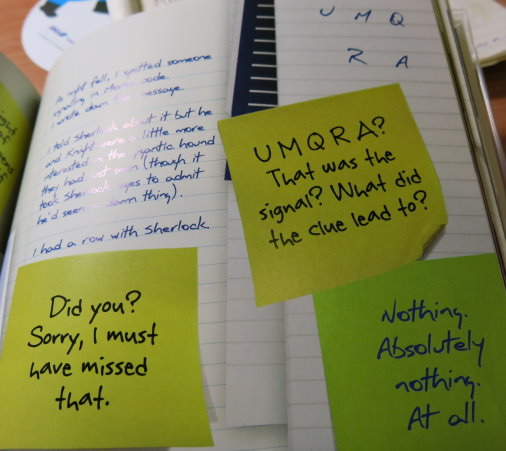 As night fell, I spotted someone
signalling in Morse code.
I wrote down the message.
I told Sherlock about it but he
and Knight were a little more
interested in the gigantic hound
they had just seen (though it
took Sherlock ages to admit
he'd seen a damn thing).
I had a row with Sherlock.
Did you?
Sorry, I must
have missed
that.
U M Q
R A
UMQRA?
That was the
signal? What did
the clue lead to?
Nothing.
Absolutely
nothing.
At all.